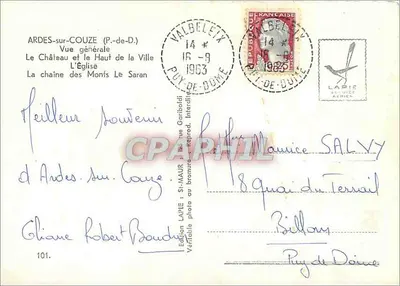 ARDES-sur-COUZE (P.-de-D.)
Vue générale
Le Château et le Haut de la Ville
L'Église
La chaîne des Monts Le Saran
VALBELEIX
14 *
16-9
1963
PUY-DE-DOME
VALBELEIX
14 *
1963
PUY-DE-DOME
LAPIE
Meilleur Souvenir
d'Ardes sur Couze
Eliane Robert Baudry
101.
Edition LAPIE ; St-MAUR rue Garibaldi
Véritable photo au bromure - Reprod. interd.
CPAPHIL
Maurice SALVY
8 Quai du Terrail
Billom
Puy de Dôme